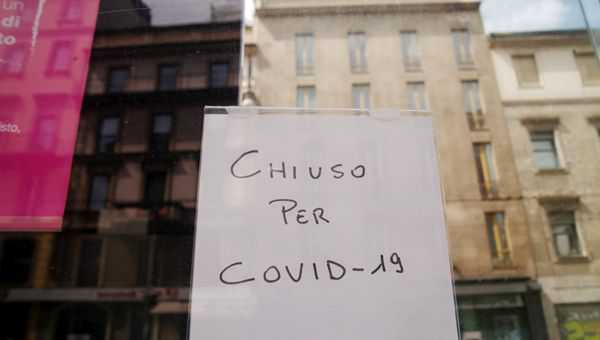 un
di
to
sto,
CHIUSO
PER
COVID-19